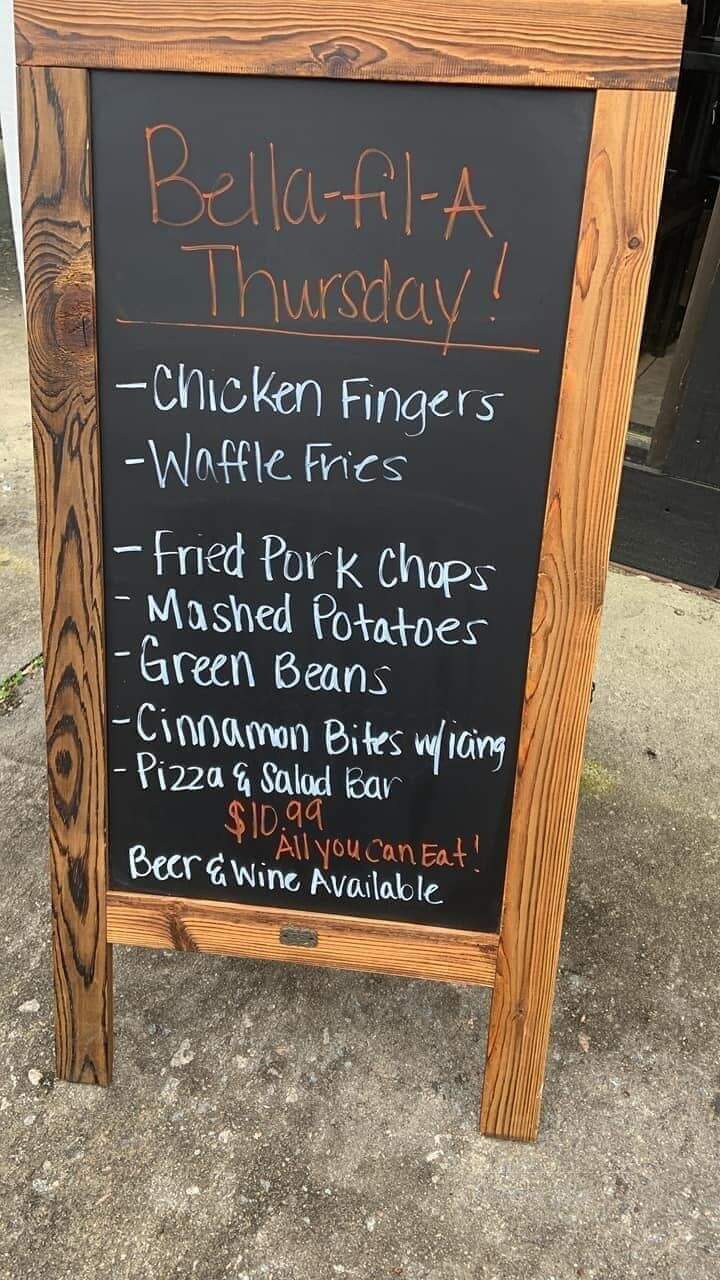 Bella-fil-A
Thursday!
- Chicken Fingers
- Waffle Fries
- Fried Pork Chops
- Mashed Potatoes
- Green Beans
- Cinnamon Bites w/icing
- Pizza & Salad Bar
$10.99
All you can Eat!
Beer & Wine Available